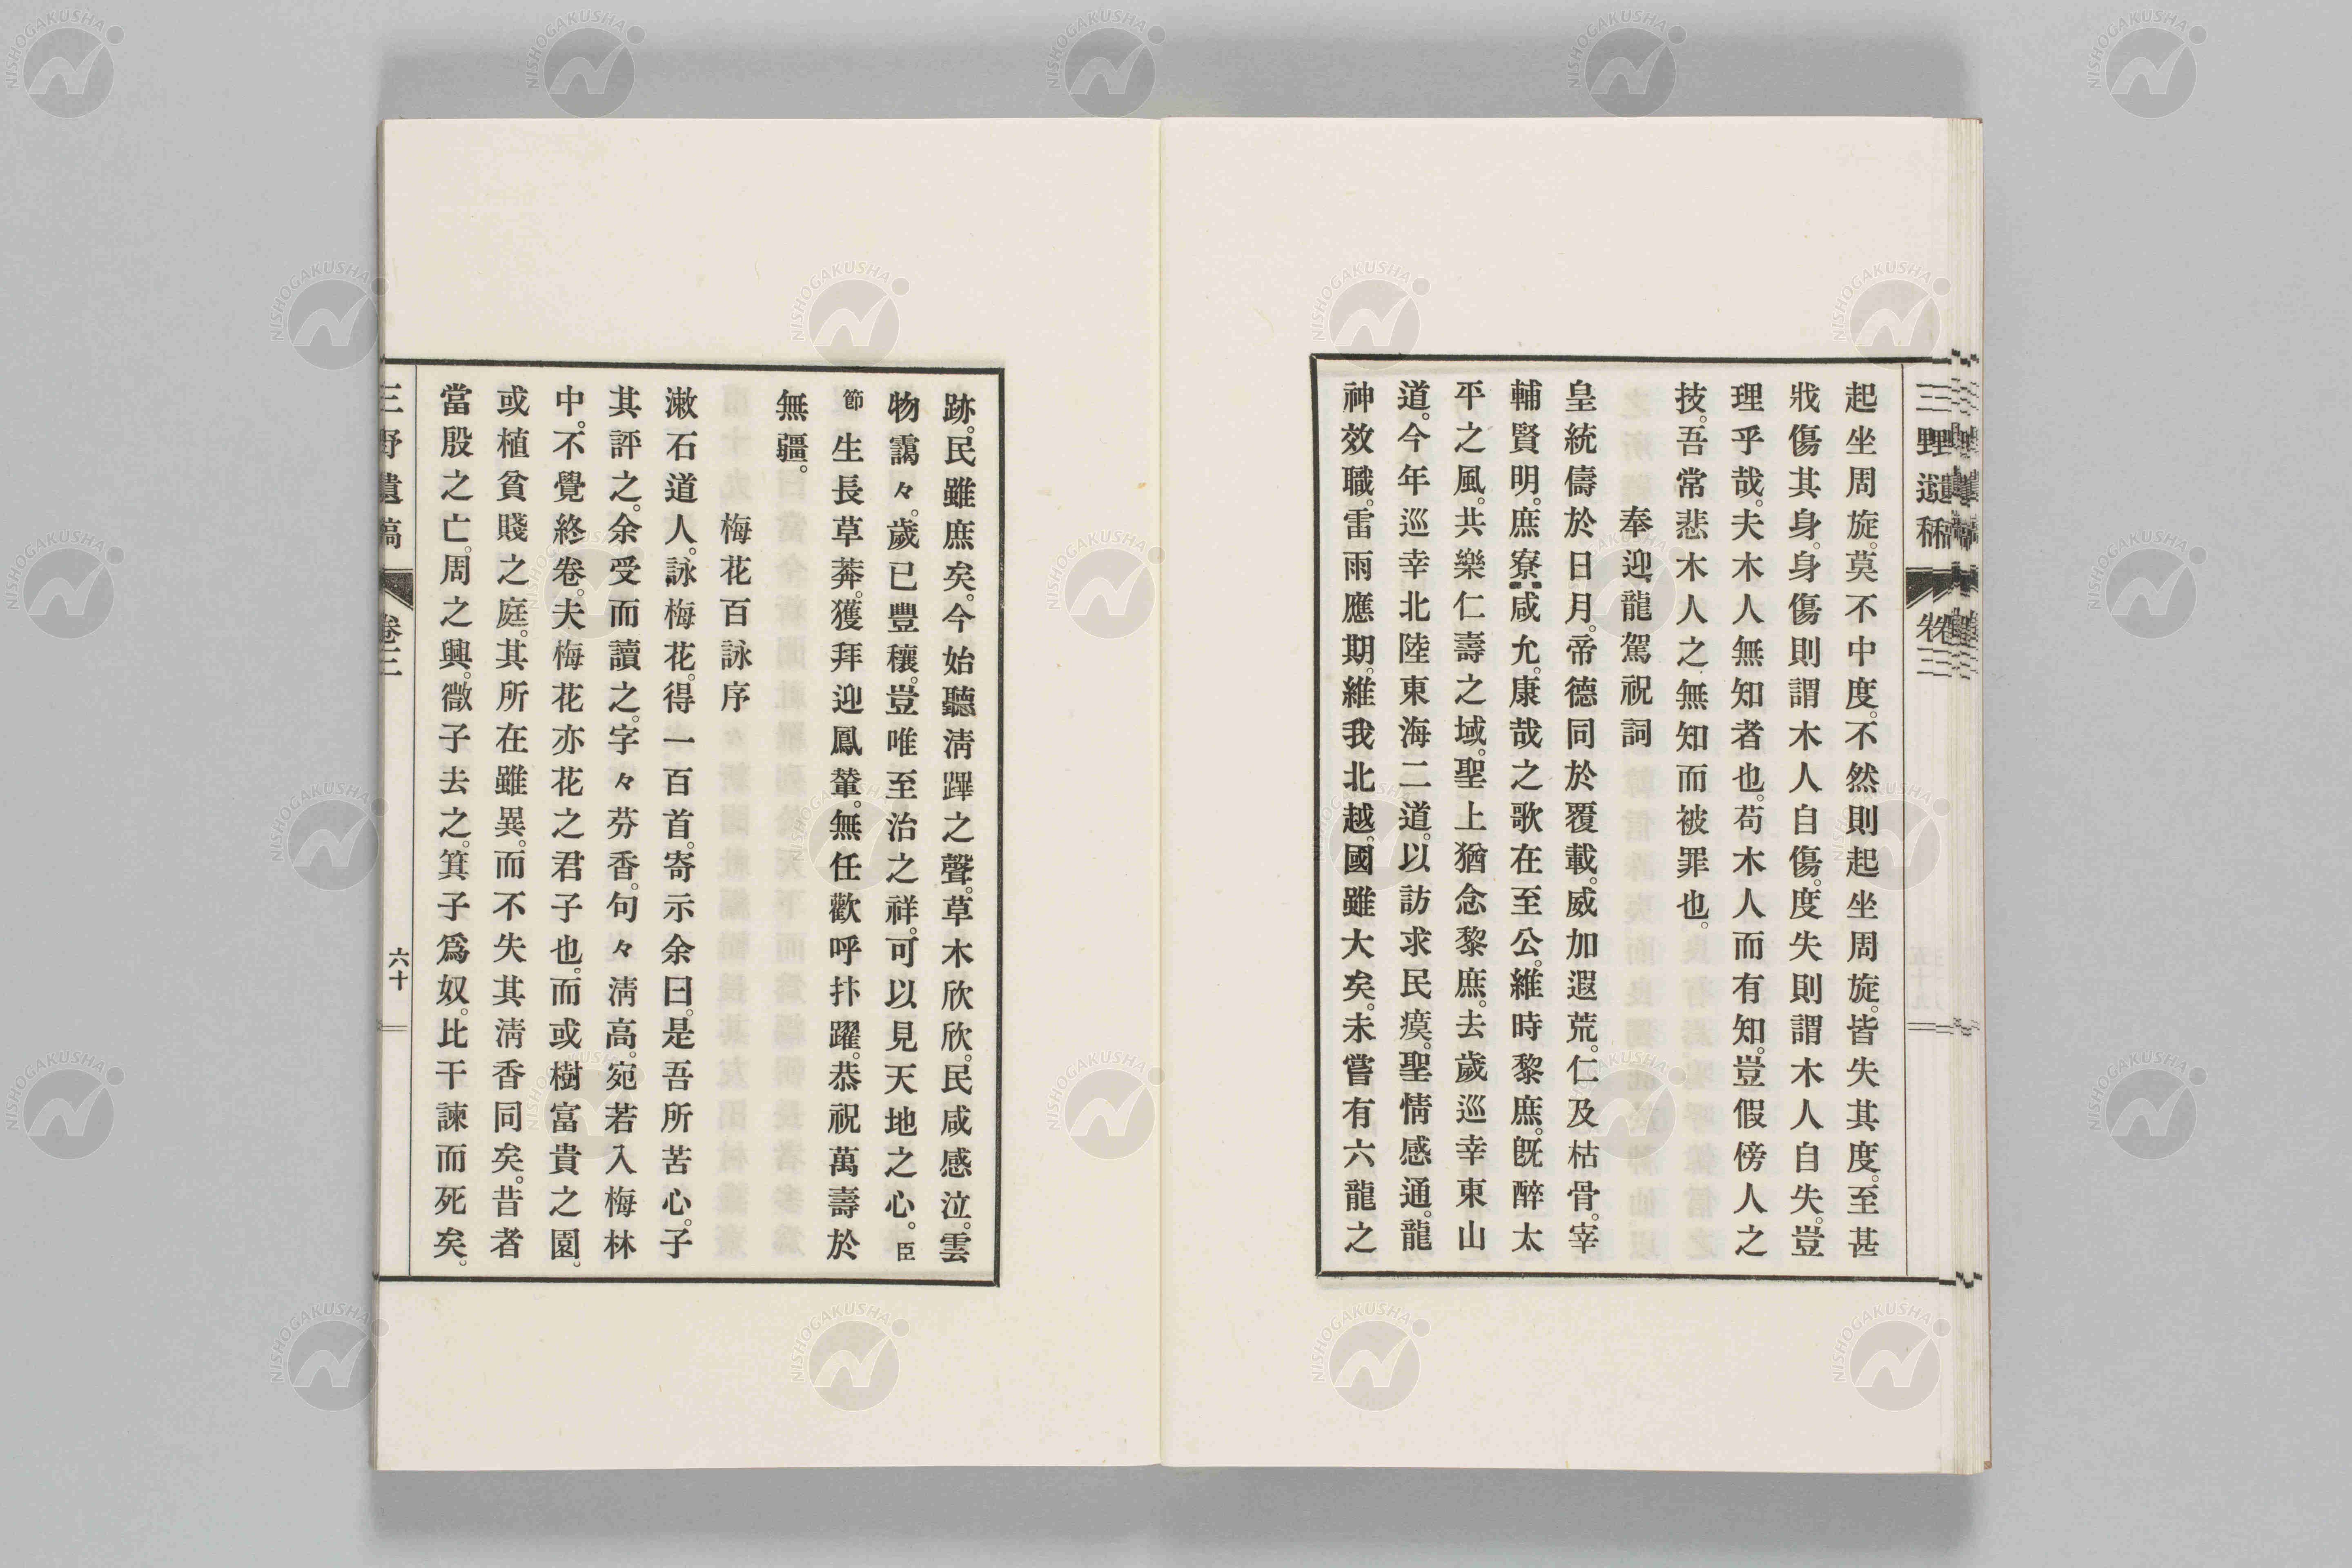 起坐周旋。莫不中度。不然則起坐周旋。皆失其度。至甚
戕傷其身。身傷則謂木人自傷。度失則謂木人自失。豈
理乎哉。夫木人無知者也。苟木人而有知。豈假傍人之
技。吾常悲木人之無知而被罪也。
奉迎龍駕祝詞
皇統儔於日月。帝德同於覆載。威加遐荒。仁及枯骨。宰
輔賢明。庶寮咸允。康哉之歌在至公。維時黎庶。既醉太
平之風。共樂仁壽之域。聖上猶念黎庶。去歲巡幸東山
道。今年巡幸北陸東海二道。以訪求民瘼。聖情感通。龍
神效職。雷雨應期。維我北越。國雖大矣。未嘗有六龍之
跡。民雖庶矣。今始聽淸蹕之聲。草木欣欣。民咸感泣。雲
物靄々。歲已豐穰。豈唯至治之祥。可以見天地之心。臣
節生長草莽。獲拜迎鳳輦。無任歡呼抃躍。恭祝萬壽於
無疆。
梅花百詠序
漱石道人。詠梅花。得一百首。寄示余曰。是吾所苦心。子
其評之。余受而讀之。字々芬香。句々淸高。宛若入梅林
中。不覺終卷。夫梅花亦花之君子也。而或樹富貴之園。
或植貧賤之庭。其所在雖異。而不失其淸香同矣。昔者
當殷之亡。周之興。微子去之。箕子爲奴。比干諫而死矣。
三野遺稿 卷三 六十
NISHOGAKUSHA